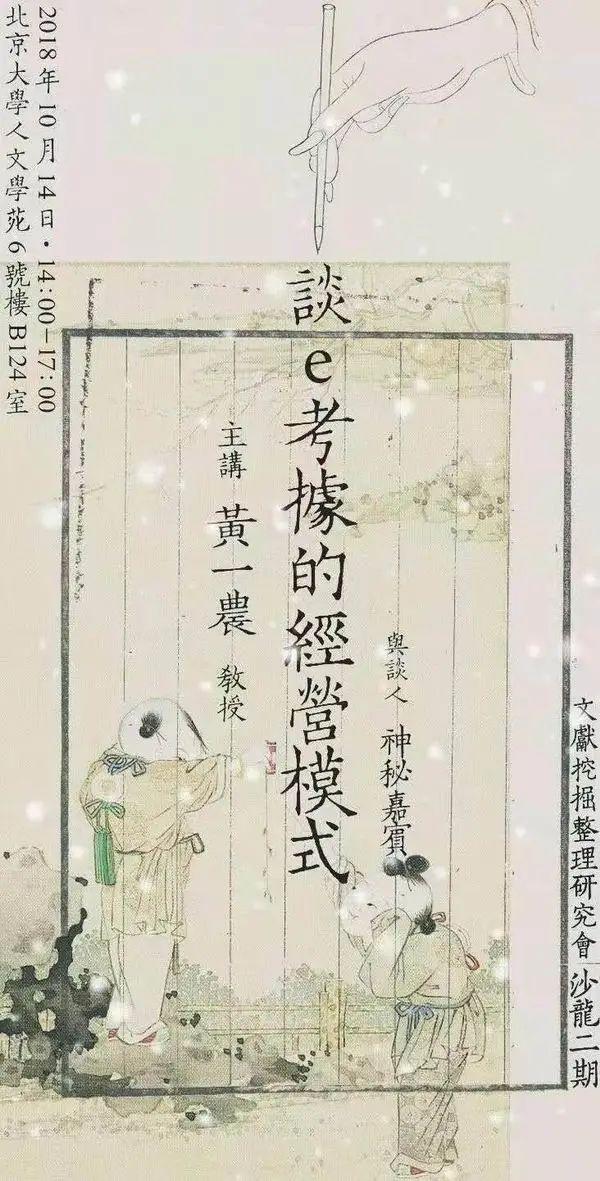 文獻挖掘整理研究會｜沙龍二期
與談人 神秘嘉賓
談e考據的經營模式
主講 黃一農 教授
2018年10月14日·14:00-17:00
北京大學人文學苑6號樓B124室